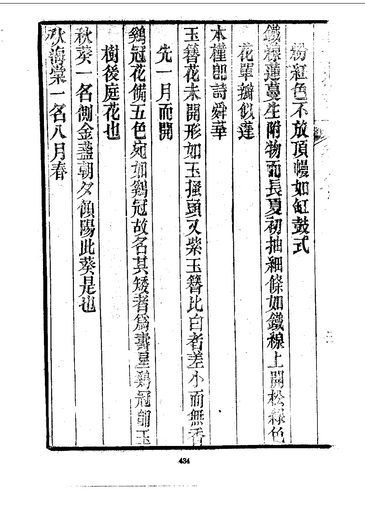 粉紅色不放頂幔如缸鼓式
鐵線蓮蔓生附物而長夏初抽細條如鐵線上開松綠色
花單瓣似蓮
木槿卽詩舜華
玉簪花未開形如玉搔頭又紫玉簪比白者差小而無香
先一月而開
鷄冠花備五色宛如鷄冠故名其矮者爲壽星鷄冠卽玉
樹後庭花也
秋葵一名側金盞朝夕傾陽此葵是也
秋海棠一名八月春
434